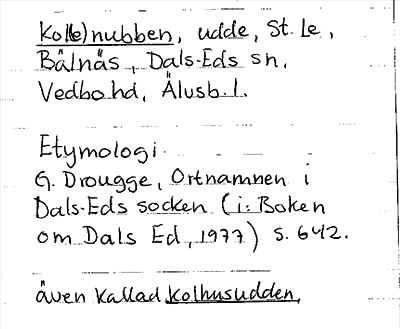 Kol(le)nubben, udde, St. Le,
Bälnäs, Dals-Eds sn,
Vedbo hd, Älvsb. l.
Etymologi.
G. Drougge, Ortnamnen i
Dals-Eds socken (i: Boken
om Dals Ed, 1977) s. 642.
även kallad Kolhusudden.